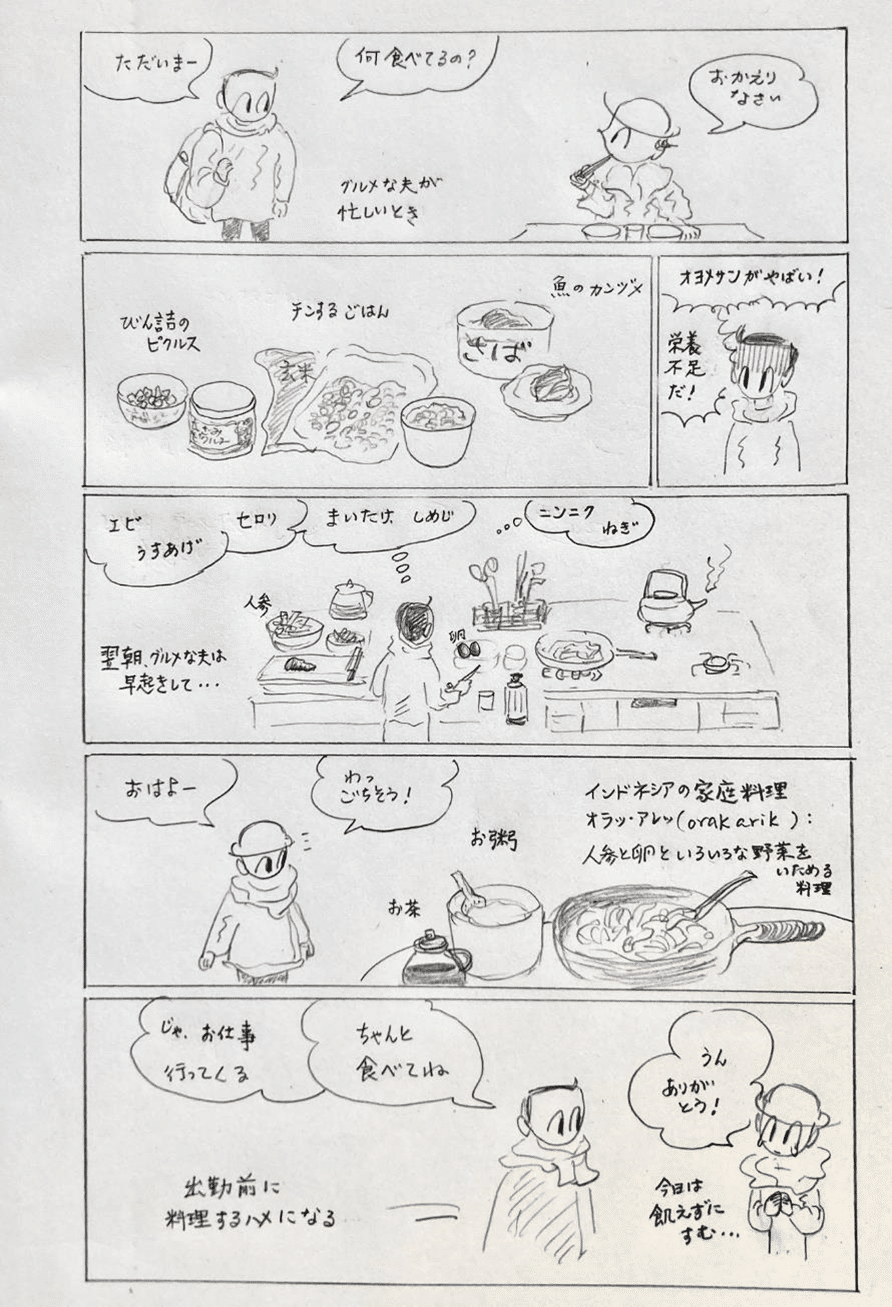 ただいまー
何食べてるの?
おかえり
なさい
グルメな夫が
忙しいとき
びん詰の
ピクルス
チンするごはん
玄米
魚のカンヅメ
さば
オヨメサンがやばい!
栄養
不足
だ!
エビ
うすあげ
セロリ
まいたけ しめじ
ニンニク
ねぎ
人参
卵
翌朝、グルメな夫は
早起きして・・・
おはよー
わっ
ごちそう!
お粥
お茶
インドネシアの家庭料理
オラッ・アレッ(orak arik):
人参と卵といろいろな野菜を
いためる
料理
じゃ、お仕事
行ってくる
ちゃんと
食べてね
うん
ありが
とう!
出勤前に
料理するハメになる
今日は
飢えずに
すむ・・・